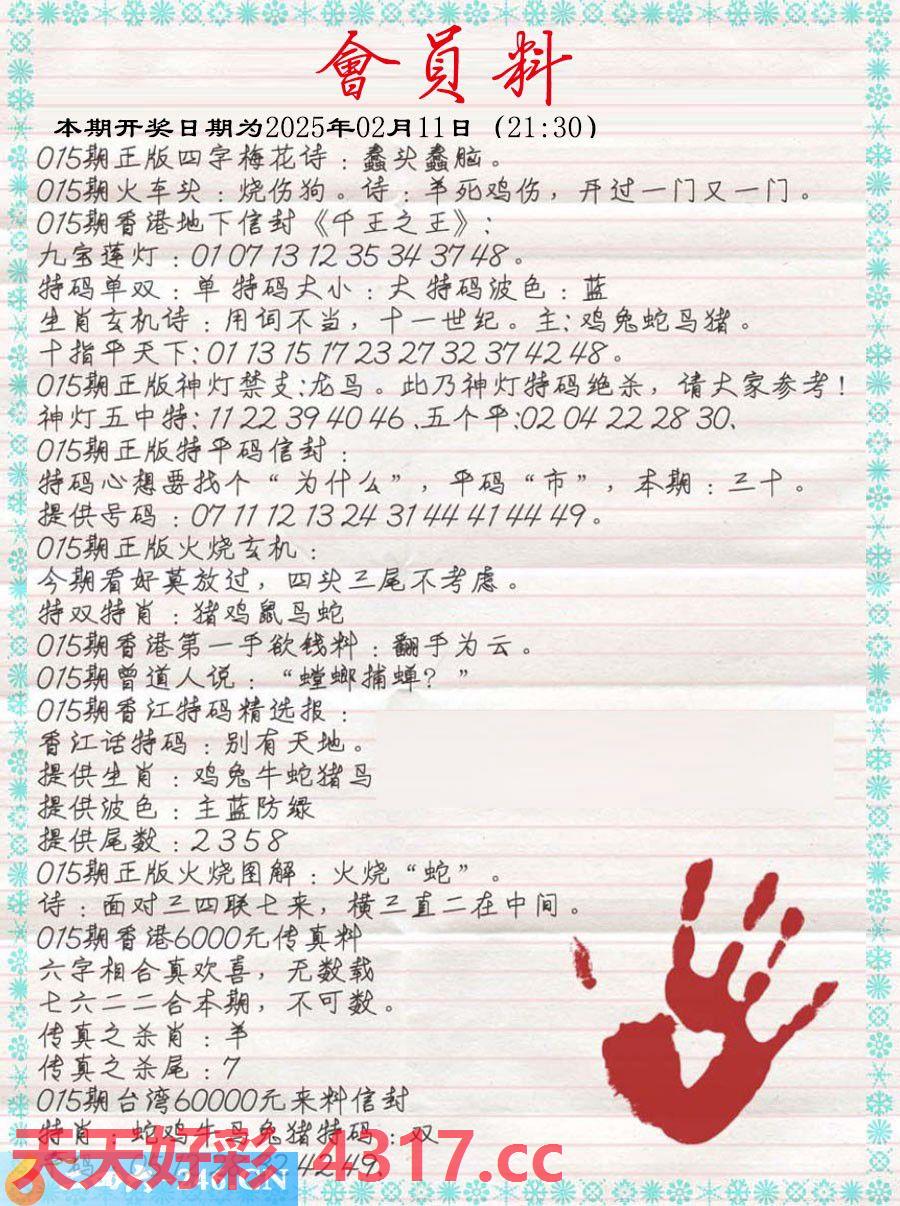 會員料
本期开奖日期为2025年02月11日（21:30）
015期正版四字梅花诗：蠢头蠢脑。
015期火车头：烧伤狗。诗：羊死鸡伤，开过一门又一门。
015期香港地下信封《千王之王》:
九宝莲灯：01 07 13 12 35 34 37 48。
特码单双：单 特码大小：大 特码波色：蓝
生肖玄机诗：用词不当，十一世纪。主:鸡兔蛇马猪。
十指平天下:01 13 15 17 23 27 32 37 42 48。
015期正版神灯禁支:龙马。此乃神灯特码绝杀，请大家参考！
神灯五中特: 11 22 39 40 46 、五个平:02 04 22 28 30、
015期正版特平码信封：
特码心想要找个“为什么”，平码“市”，本期：三十。
提供号码：07 11 12 13 24 31 44 41 44 49。
015期正版火烧玄机：
今期看好莫放过，四头三尾不考虑。
特双特肖：猪鸡鼠马蛇
015期香港第一手欲钱料：翻手为云。
015期曾道人说：“螳螂捕蝉？”
015期香江特码精选报：
香江话特码：别有天地。
提供生肖：鸡兔牛蛇猪马
提供波色：主蓝防绿
提供尾数：2 3 5 8
015期正版火烧图解：火烧“蛇”。
诗：面对三四联七来，横三直二在中间。
015期香港6000元传真料
六字相合真欢喜，无数载
七六二二合本期，不可数。
传真之杀肖：羊
传真之杀尾：7
015期台湾60000元来料信封
特肖：蛇鸡牛马兔猪特码：双
42 49、
天天好彩 4317.cc